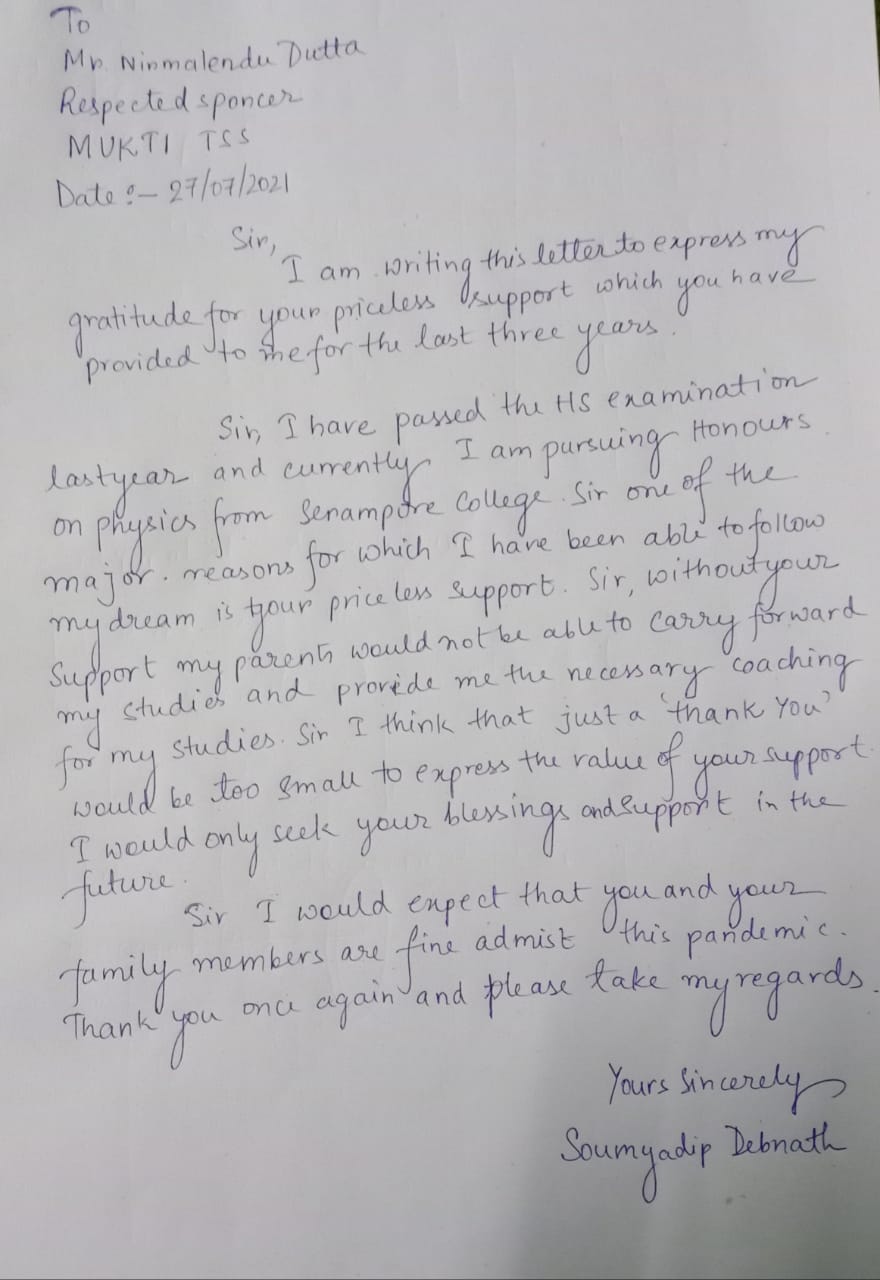 To
Mr. Nirmalendu Dutta
Respected sponcer
MUKTI TSS
Date :- 27/07/2021
Sir,
I am writing this letter to express my
gratitude for your priceless support which you have
provided to me for the last three years.
Sir, I have passed the HS examination
last year and currently I am pursuing Honours
on physics from Serampore College. Sir one of the
major. reasons for which I have been able to follow
my dream is your priceless support. Sir, without your
Support my parents would not be able to carry forward
my studies and provide me the necessary coaching
for my studies. Sir I think that just a 'thank You'
would be too small to express the value of your support.
I would only seek your blessings and support in the
future.
Sir I would expect that you and your
family members are fine admist this pandemic.
Thank you once again and please take my regards.
Yours Sincerely
Soumyadip Debnath